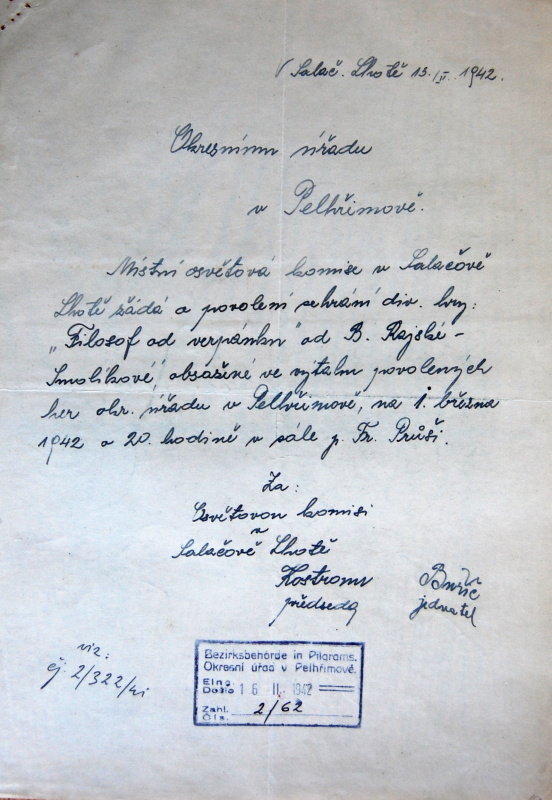 V Salač. Lhotě 15./II. 1942.
Okresnímu úřadu
v Pelhřimově.
Místní osvětová komise v Salačově
Lhotě žádá o povolení sehrání div. hry:
"Filosof od verpánku" od B. Rajské-
Smolíkové, obsažené ve výtahu povolených
her okr. úřadu v Pelhřimově, na 1. března
1942 o 20. hodině v sále p. Fr. Průši.
Za:
Osvětovou komisi
v
Salačově Lhotě
Kostroun
předseda
jednatel
viz:
čj. 2/322/
Bezirksbehörde in Pilgrams.
Okresní úřad v Pelhřimově.
Eing.
Došlo 16 II. 1942
Zahl.
Čís. 2/62